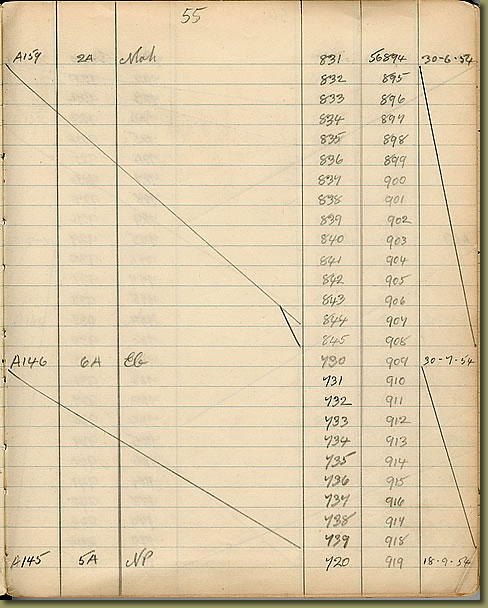 55
A159 2A Mah 831 56894 30-6-54
832 895
833 896
834 897
835 898
836 899
837 900
838 901
839 902
840 903
841 904
842 905
843 906
844 907
845 908
A146 6A 730 909 30-7-54
731 910
732 911
733 912
734 913
735 914
736 915
737 916
738 917
739 918
A145 5A NP 720 919 18-9-54